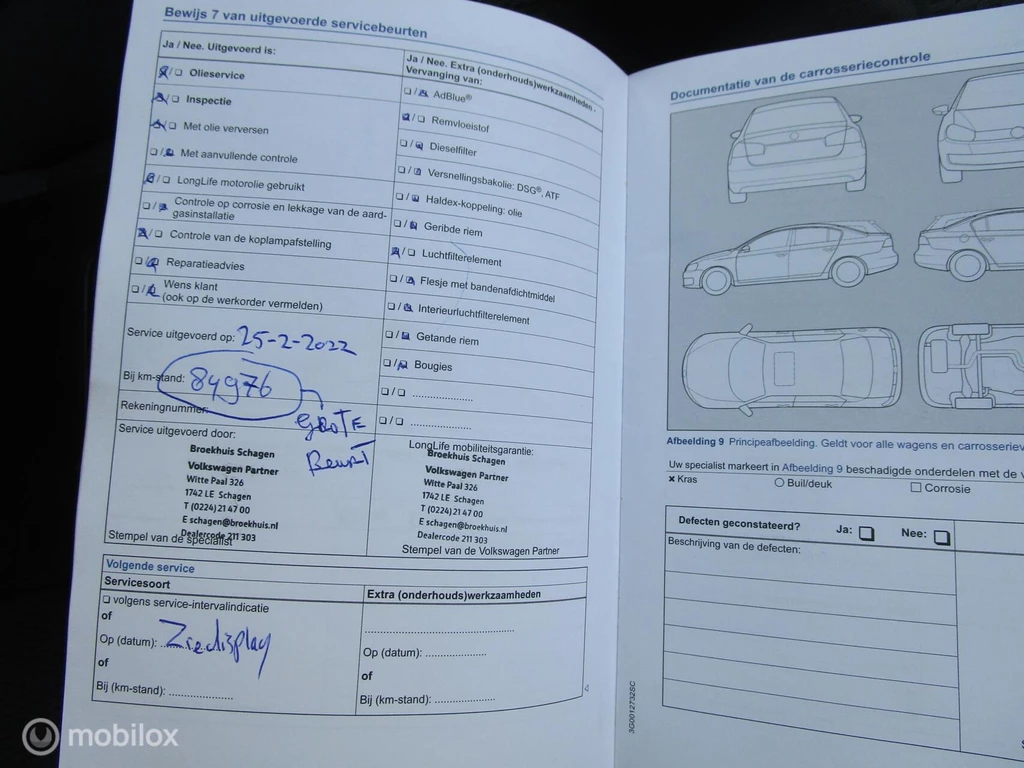 Bewijs 7 van uitgevoerde servicebeurten
Ja / Nee. Uitgevoerd is:
Olieservice
Inspectie
Met olie verversen
Met aanvullende controle
LongLife motorolie gebruikt
Controle op corrosie en lekkage van de aard-
gasinstallatie
Controle van de koplampafstelling
Reparatieadvies
Wens klant
(ook op de werkorder vermelden)
Ja / Nee. Extra (onderhouds)werkzaamheden -
Vervanging van:
AdBlue®
Remvloeistof
Dieselfilter
Versnellingsbakolie: DSG®, ATF
Haldex-koppeling: olie
Geribde riem
Luchtfilterelement
Flesje met bandenafdichtmiddel
Interieurluchtfilterelement
Getande riem
Bougies
Service uitgevoerd op: 25-2-2022
Bij km-stand: 84976
GROTE
Beurt
Rekeningnummer:
Service uitgevoerd door:
Broekhuis Schagen
Volkswagen Partner
Witte Paal 326
1742 LE Schagen
T (0224) 21 47 00
E schagen@broekhuis.nl
Dealercode 211 303
Stempel van de specialist
LongLife mobiliteitsgarantie:
Broekhuis Schagen
Volkswagen Partner
Witte Paal 326
1742 LE Schagen
T (0224) 21 47 00
E schagen@broekhuis.nl
Dealercode 211 303
Stempel van de Volkswagen Partner
Volgende service
Servicesoort
volgens service-intervalindicatie
of
Op (datum): Zie display
of
Bij (km-stand): ....................
Extra (onderhouds)werkzaamheden
Op (datum): ...................
of
Bij (km-stand): ..................
4
Documentatie van de carrosseriecontrole
Afbeelding 9 Principeafbeelding. Geldt voor alle wagens en
Uw specialist markeert in Afbeelding 9 beschadigde onderdelen met de
× Kras
Buil/deuk
Corrosie
Defecten geconstateerd? Ja: Nee:
Beschrijving van de defecten:
3G0012732SC
mobilox